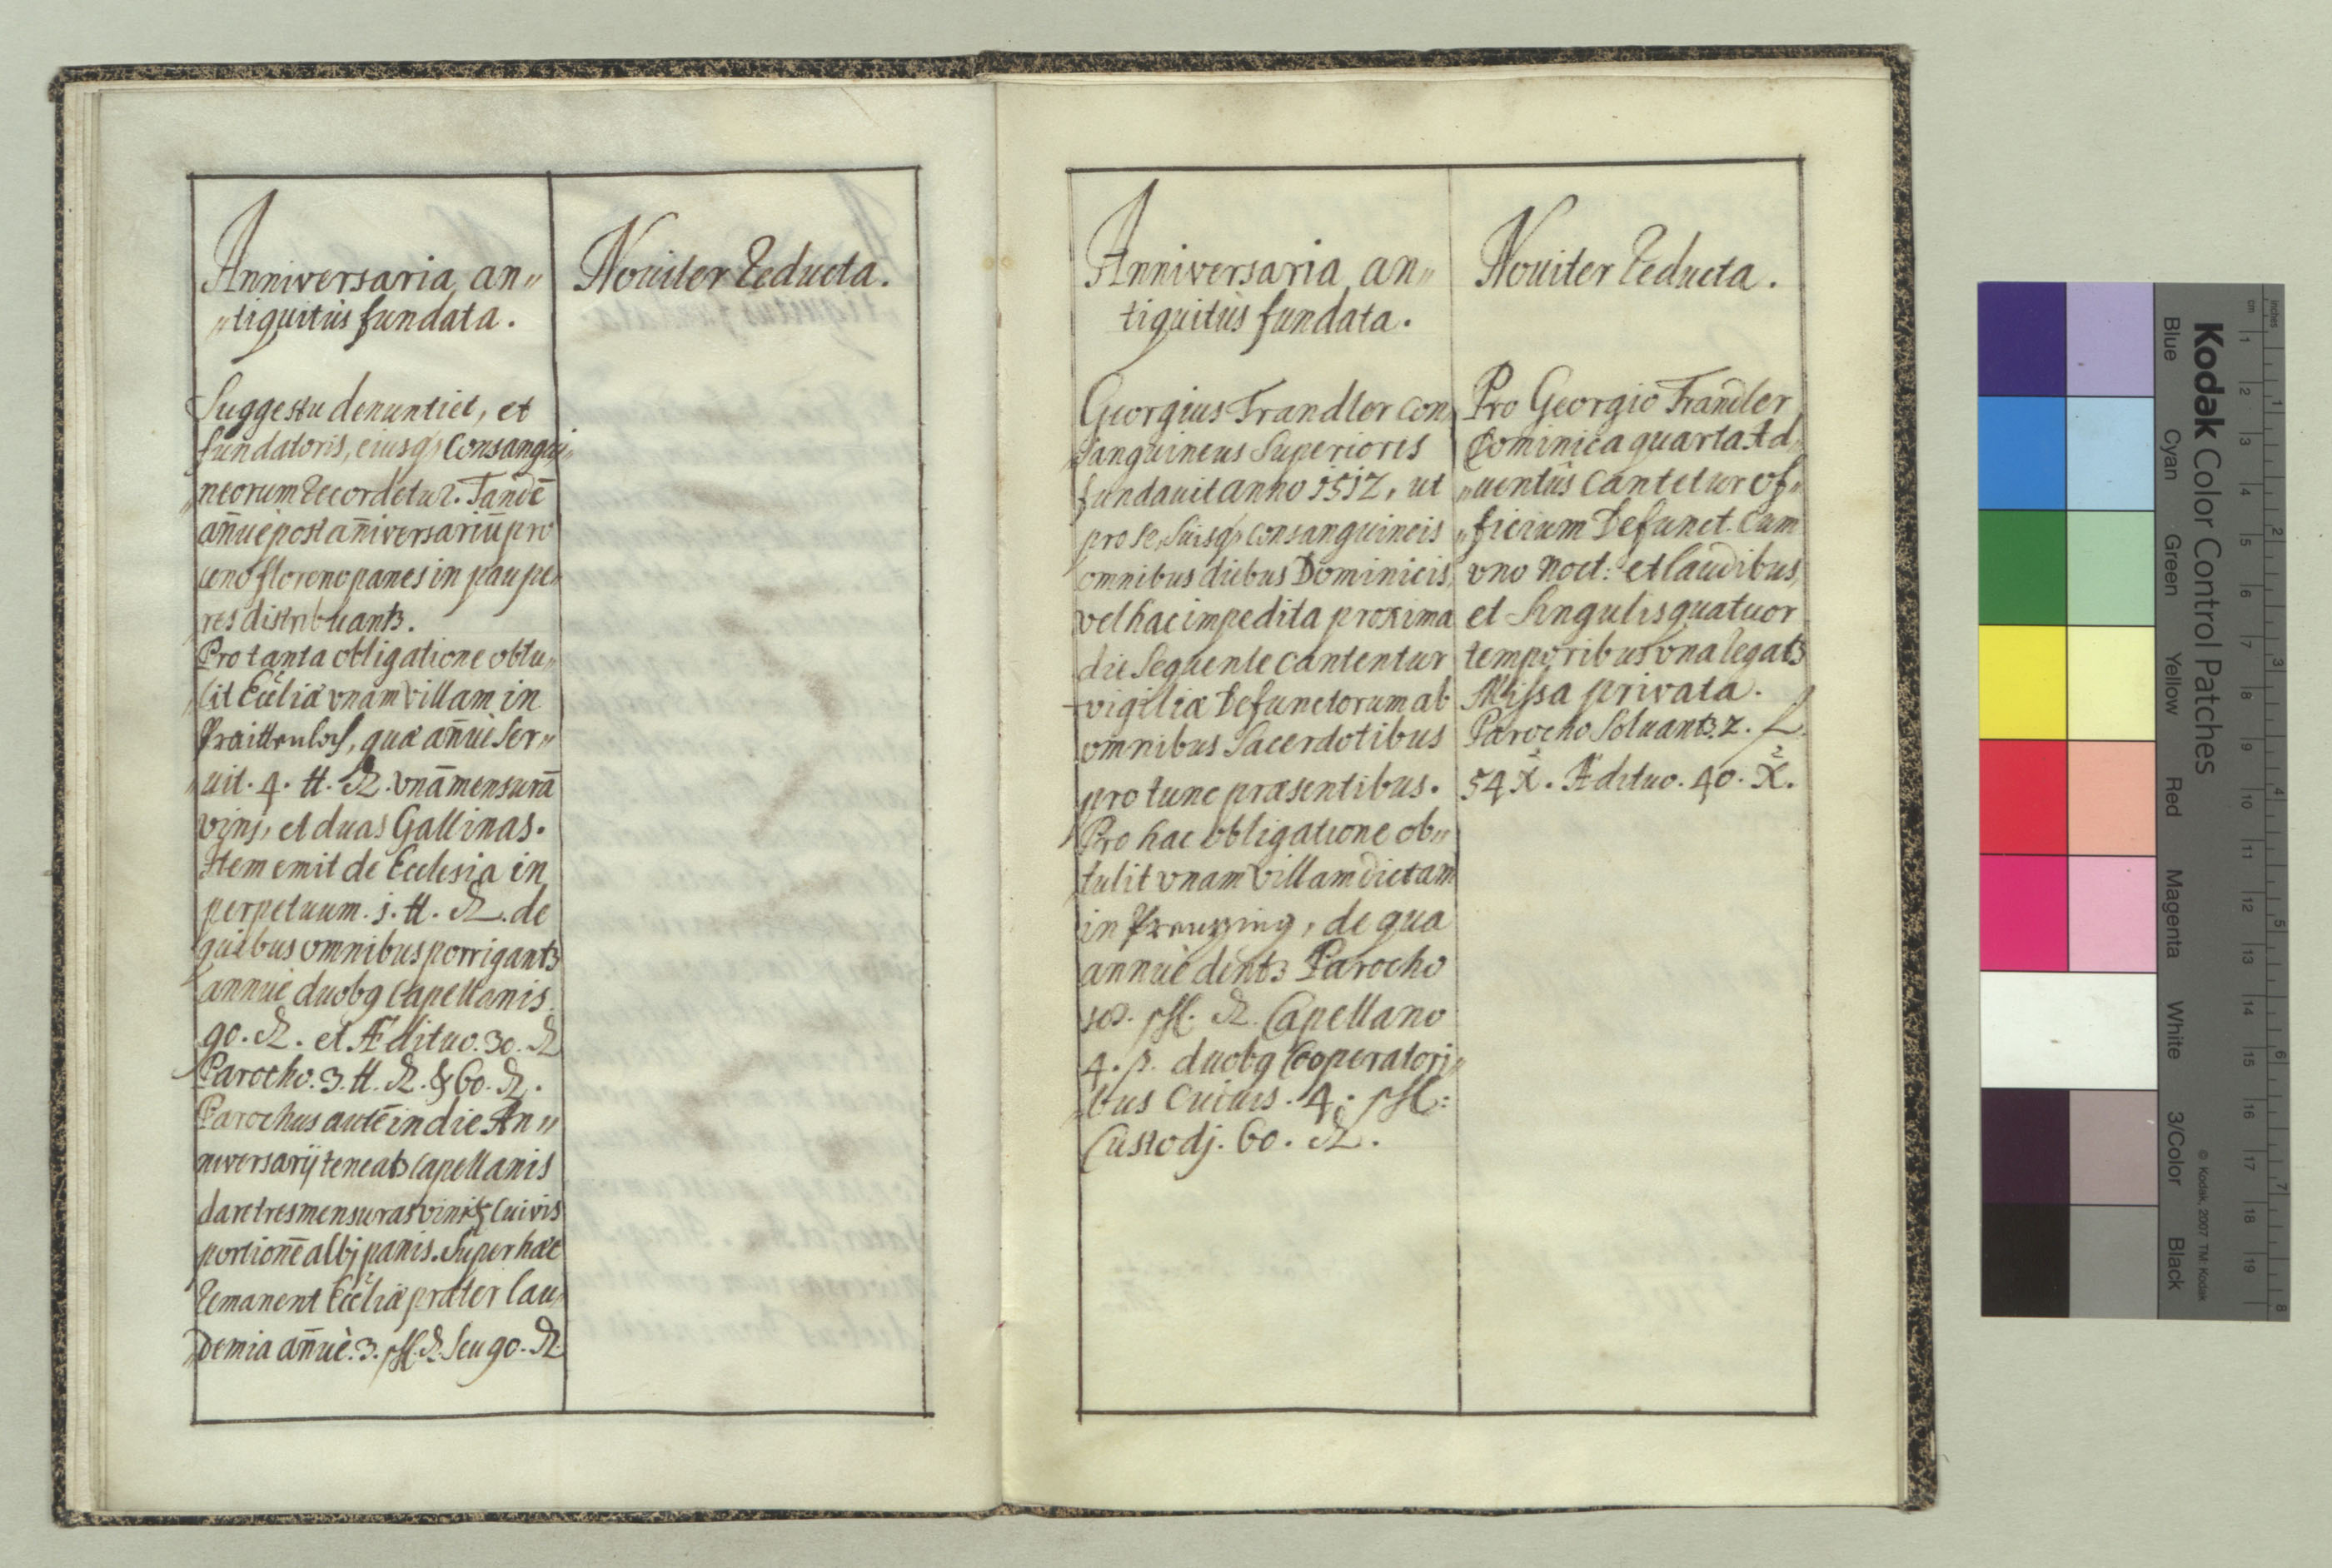 Anniversaria, an„
„tiquitùs fundata.
Suggestu denuntiet, et
fundatoris, eiusq3 Consangui„
„neorum recordetur. Tandē
añuè post añiversariū pro
uno floreno panes in paupe„
„res distribuant3.
Pro tanta obligatione obtu„
„lit Eccliæ vnam villam in
quæ añuè Ser„
„uit. 4. tt. ₰. vnā mensurā
vinj, et duas Gallinas.
Item emit de Ecclesia in
perpetuum. j. tt. ₰. de
quibus omnibus porrigant3
annuè duob9 Capellanis.
90. ₰. et Ædituo. 30. ₰
Parocho. 3. tt. ₰. & 60. ₰.
Parochus autē in die An„
niversarij teneat3 Capellanis
dare tres mensuras vini, & Cuivis
portionē albj panis. Super hæc
remanent Eccliæ præter lau„
„demia añuè. 3. ßl. ₰. Seu 90. ₰.
Nouiter reducta.
Anniversaria, an„
tiquitùs fundata.
Georgius Trandler Con„
„sanguineus Superioris
fundauit anno 1512, ut
pro se, Suisq3 consanguineis
omnibus diebus Dominicis,
vel hac impedita proxima
die Sequente cantentur
vigiliæ Defunctorum ab
omnibus Sacerdotibus
pro tunc præsentibus.
Pro hac obligatione ob„
tulit vnam villam dictam
in de qua
annuè dent3 Parocho
ßl. ₰. Capellano
4. ß. duob9 Cooperatori„
„bus Cuiuis. 4. ßl:
Custodj. 60. ₰.
Nouiter reducta.
Pro Georgio Trandler
Dominica quarta Ad„
„uentûs Cantetur of„
„ficium Defunct. Cum
vno Noct: et laudibus,
et Singulis quatuor
temporibus vna legat3
Missa privata.
Parocho Soluant3. 2. f.
54 X. Ædituo. 40. X.
Kodak Color Control Patches
© Kodak, 2007 TM: Kodak
Blue Cyan Green Yellow Red Magenta White 3/Color Black
cm 1 2 3 4 5 6 7 8 9 10 11 12 13 14 15 16 17 18 19
inches 1 2 3 4 5 6 7 8